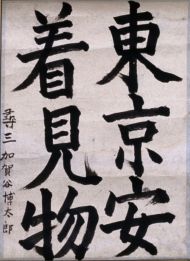 東京安
着見物
尋三 加賀谷博太郎